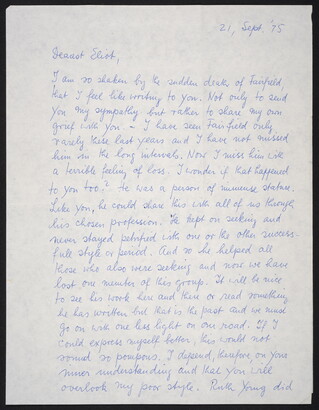 21, Sept. 75
Dearest Eliot,
I am so shaken by the sudden death of Fairfield,
that I feel like writing to you. Not only to send
you my sympathy but rather to share my own
grief with you. – I have seen Fairfield only
rarely these last years and I have not missed
him in the long intervals. Now I miss him with
a terrible feeling of loss. I wonder if that happened
to you too? He was a person of immense stature.
Like you, he could share this with all of us through
his chosen profession. He kept on seeking and
never stayed petrified with one or the other success-
full style or period. And so he helped all
those who also were seeking and now we have
lost one member of this group. It will be nice
to see his work here and there or read something
he has written but that is the past and we must
go on with one less light on our road. If I
could express myself better, this would not
sound so pompous. I depend, therefore on your
inner understanding and that you will
overlook my poor style. Ruth Young did